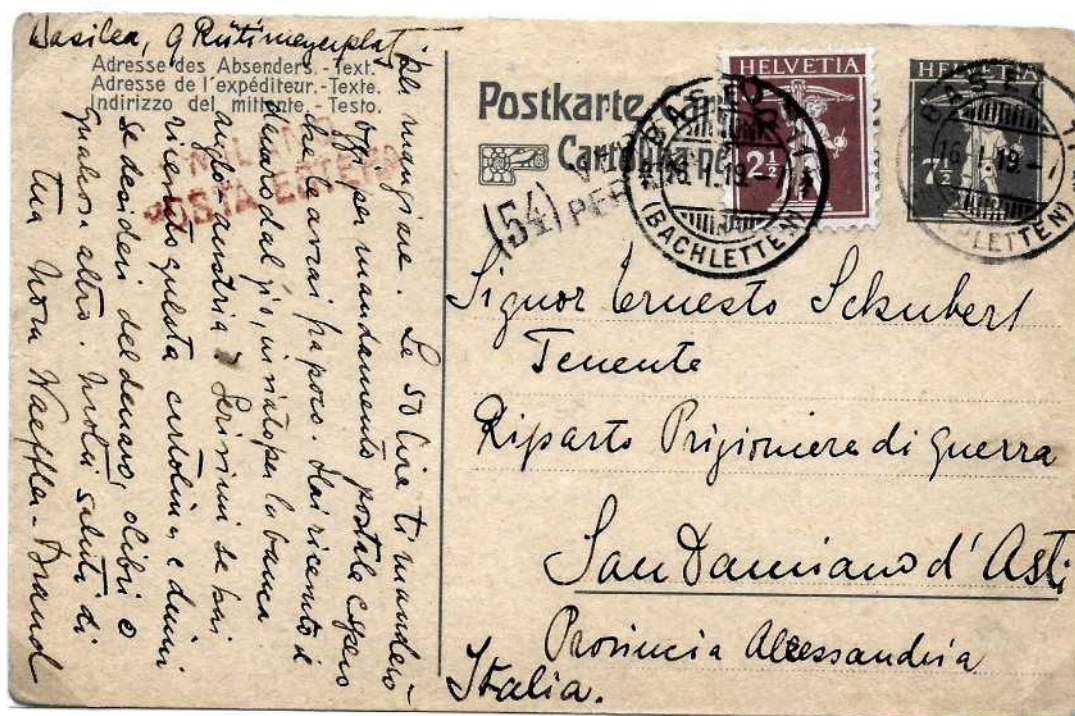 Basilea, 9 Rütimeyerplatz
Adresse des Absenders. - Text.
Adresse de l'expéditeur. - Texte.
Indirizzo del mittente. - Testo.
per mangiare. Le 50 Lira ti manderò
oggi per mandamento postale espero
che le avrai fra poco. Hai ricevuto il
denaro dal zio, inviato per la banca
anglo-austria? Scrivimi se hai
ricevuto questa cartolina e dimmi
se desideri del denaro, o libri o
qualcosa altro. Molti saluti di
tua Nora Waeffler-Brand
POSTA ESTERA
Postkarte
HELVETIA
2½
HELVETIA
7½
(54)
PER
BASEL
16.I.19.-7
(BACHLETTEN)
BASEL
16.I.19.-
Signor Ernesto Schubert
Tenente
Riparto Prigioniere di Guerra
San Damiano d'Asti
Provincia Alessandria
Italia.